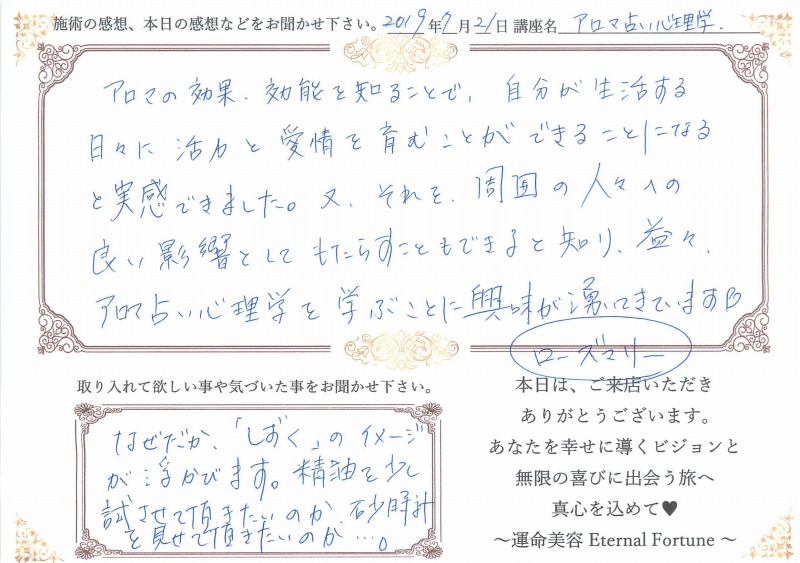 施術の感想、本日の感想などをお聞かせ下さい。2019年7月21日 講座名 アロマ占い心理学.
アロマの効果、効能を知ることで、自分が生活する
日々に活力と愛情を育むことができることになる
と実感できました。又、それを、周囲の人々への
良い影響としてもたらすこともできると知り、益々、
アロマ占い心理学を学ぶことに興味が湧いてきています
ローズマリー
取り入れて欲しい事や気づいた事をお聞かせ下さい。
なぜだか、「しずく」のイメージ
が浮かびます。精油を少し
試させて頂きたいのか、砂時計
を見せて頂きたいのか…。
本日は、ご来店いただき
ありがとうございます。
あなたを幸せに導くビジョンと
無限の喜びに出会う旅へ
真心を込めて♥
〜運命美容 Eternal Fortune 〜